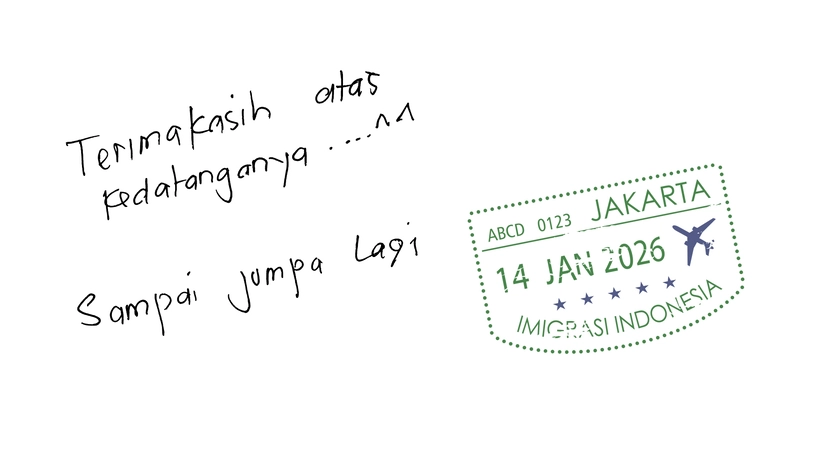 Terimakasih atas
kedatanganya ....^^
Sampai jumpa Lagi
ABCD 0123 JAKARTA
14 JAN 2026
IMIGRASI INDONESIA